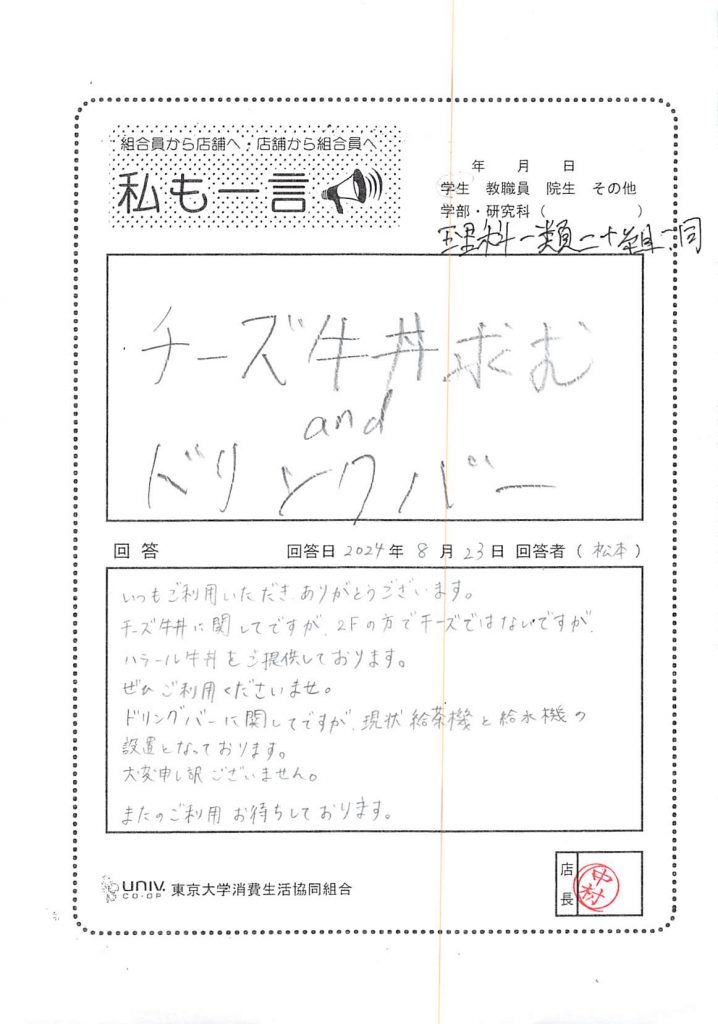 組合員から店舗へ・店舗から組合員へ
私も一言
年 月 日
学生 教職員 院生 その他
学部・研究科（ ）
理科一類二十組一同
チーズ牛丼求む
and
ドリンクバー
回答 回答日 2024年 8月 23日 回答者（ 松本 ）
いつもご利用いただき、ありがとうございます。
チーズ牛丼に関してですが、2Fの方でチーズではないですが、
ハラール牛丼をご提供しております。
ぜひご利用くださいませ。
ドリングバーに関してですが、現状給茶機と給水機の
設置となっております。
大変申し訳ございません。
またのご利用お待ちしております。
UNIV. CO-OP 東京大学消費生活協同組合
店長 中村